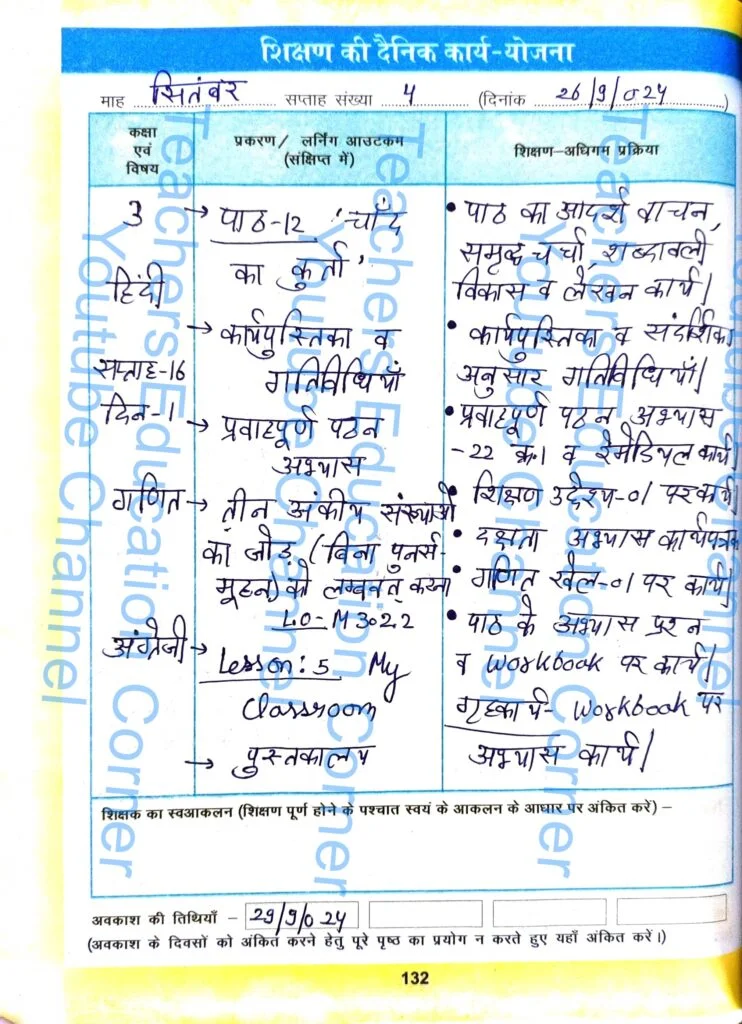 शिक्षण की दैनिक कार्य-योजना
माह सितंबर सप्ताह संख्या 4 (दिनांक 26/9/024)
कक्षा एवं विषय
प्रकरण/ लर्निंग आउटकम (संक्षिप्त में)
शिक्षण-अधिगम प्रक्रिया
3
हिंदी
सप्ताह-16
दिन-1
→ पाठ-12 'चाँद
का कुर्ता'
→ कार्यपुस्तिका व
गतिविधियाँ
→ प्रवाहपूर्ण पठन
अभ्यास
• पाठ का आदर्श वाचन,
समृद्ध चर्चा, शब्दावली
विकास व लेखन कार्य|
• कार्यपुस्तिका व संदर्शिका
अनुसार गतिविधियाँ|
• प्रवाहपूर्ण पठन अभ्यास
-22 क्र.1 व रेमेडियल कार्य|
गणित
→ तीन अंकीय संख्याओं
का जोड़ (बिना पुनर्स-
मूहन) को लम्बवत् करना
LO-M3022
• शिक्षण उद्देश्य-01 पर कार्य|
• दक्षता अभ्यास कार्यपत्रक
• गणित खेल-01 पर कार्य|
अंग्रेजी
→ Lesson: 5 My
Classroom
→ पुस्तकालय
• पाठ के अभ्यास प्रश्न
व Workbook पर कार्य|
गृहकार्य- Workbook पर
अभ्यास कार्य|
शिक्षक का स्वआकलन (शिक्षण पूर्ण होने के पश्चात स्वयं के आकलन के आधार पर अंकित करें) –
अवकाश की तिथियाँ – 29/9/024
(अवकाश के दिवसों को अंकित करने हेतु पूरे पृष्ठ का प्रयोग न करते हुए यहाँ अंकित करें।)
132
Teachers Education Corner
Youtube Channel
Teachers Education Corner
Youtube Channel
Teachers Education Corner
Youtube Channel